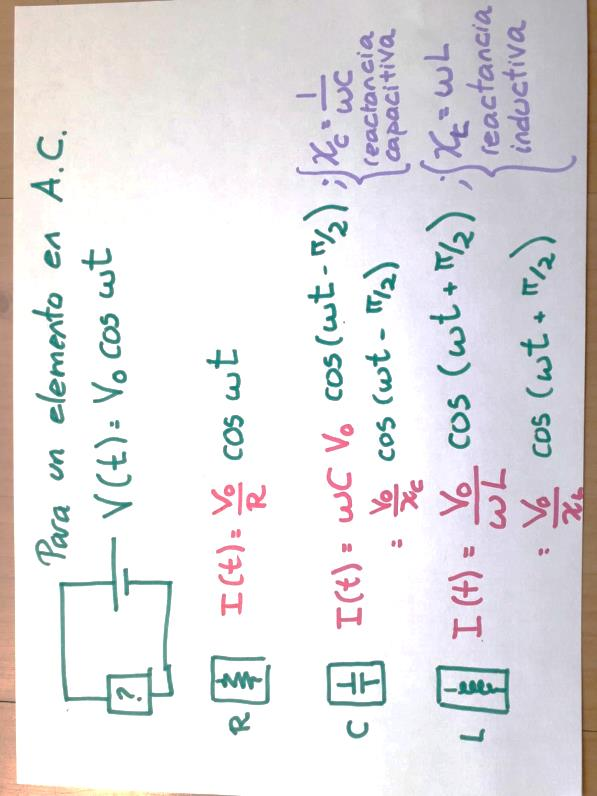 Para un elemento en A.C.
V(t) = V₀ cos ωt
?
R I(t) = V₀/R cos ωt
C I(t) = ωC V₀ cos(ωt - π/2) ; { χ_C = 1/ωC
reactancia
capacitiva
= V₀/χ_C cos(ωt - π/2)
L I(t) = V₀/ωL cos(ωt + π/2) ; { χ_L = ωL
reactancia
inductiva
= V₀/χ_L cos(ωt + π/2)